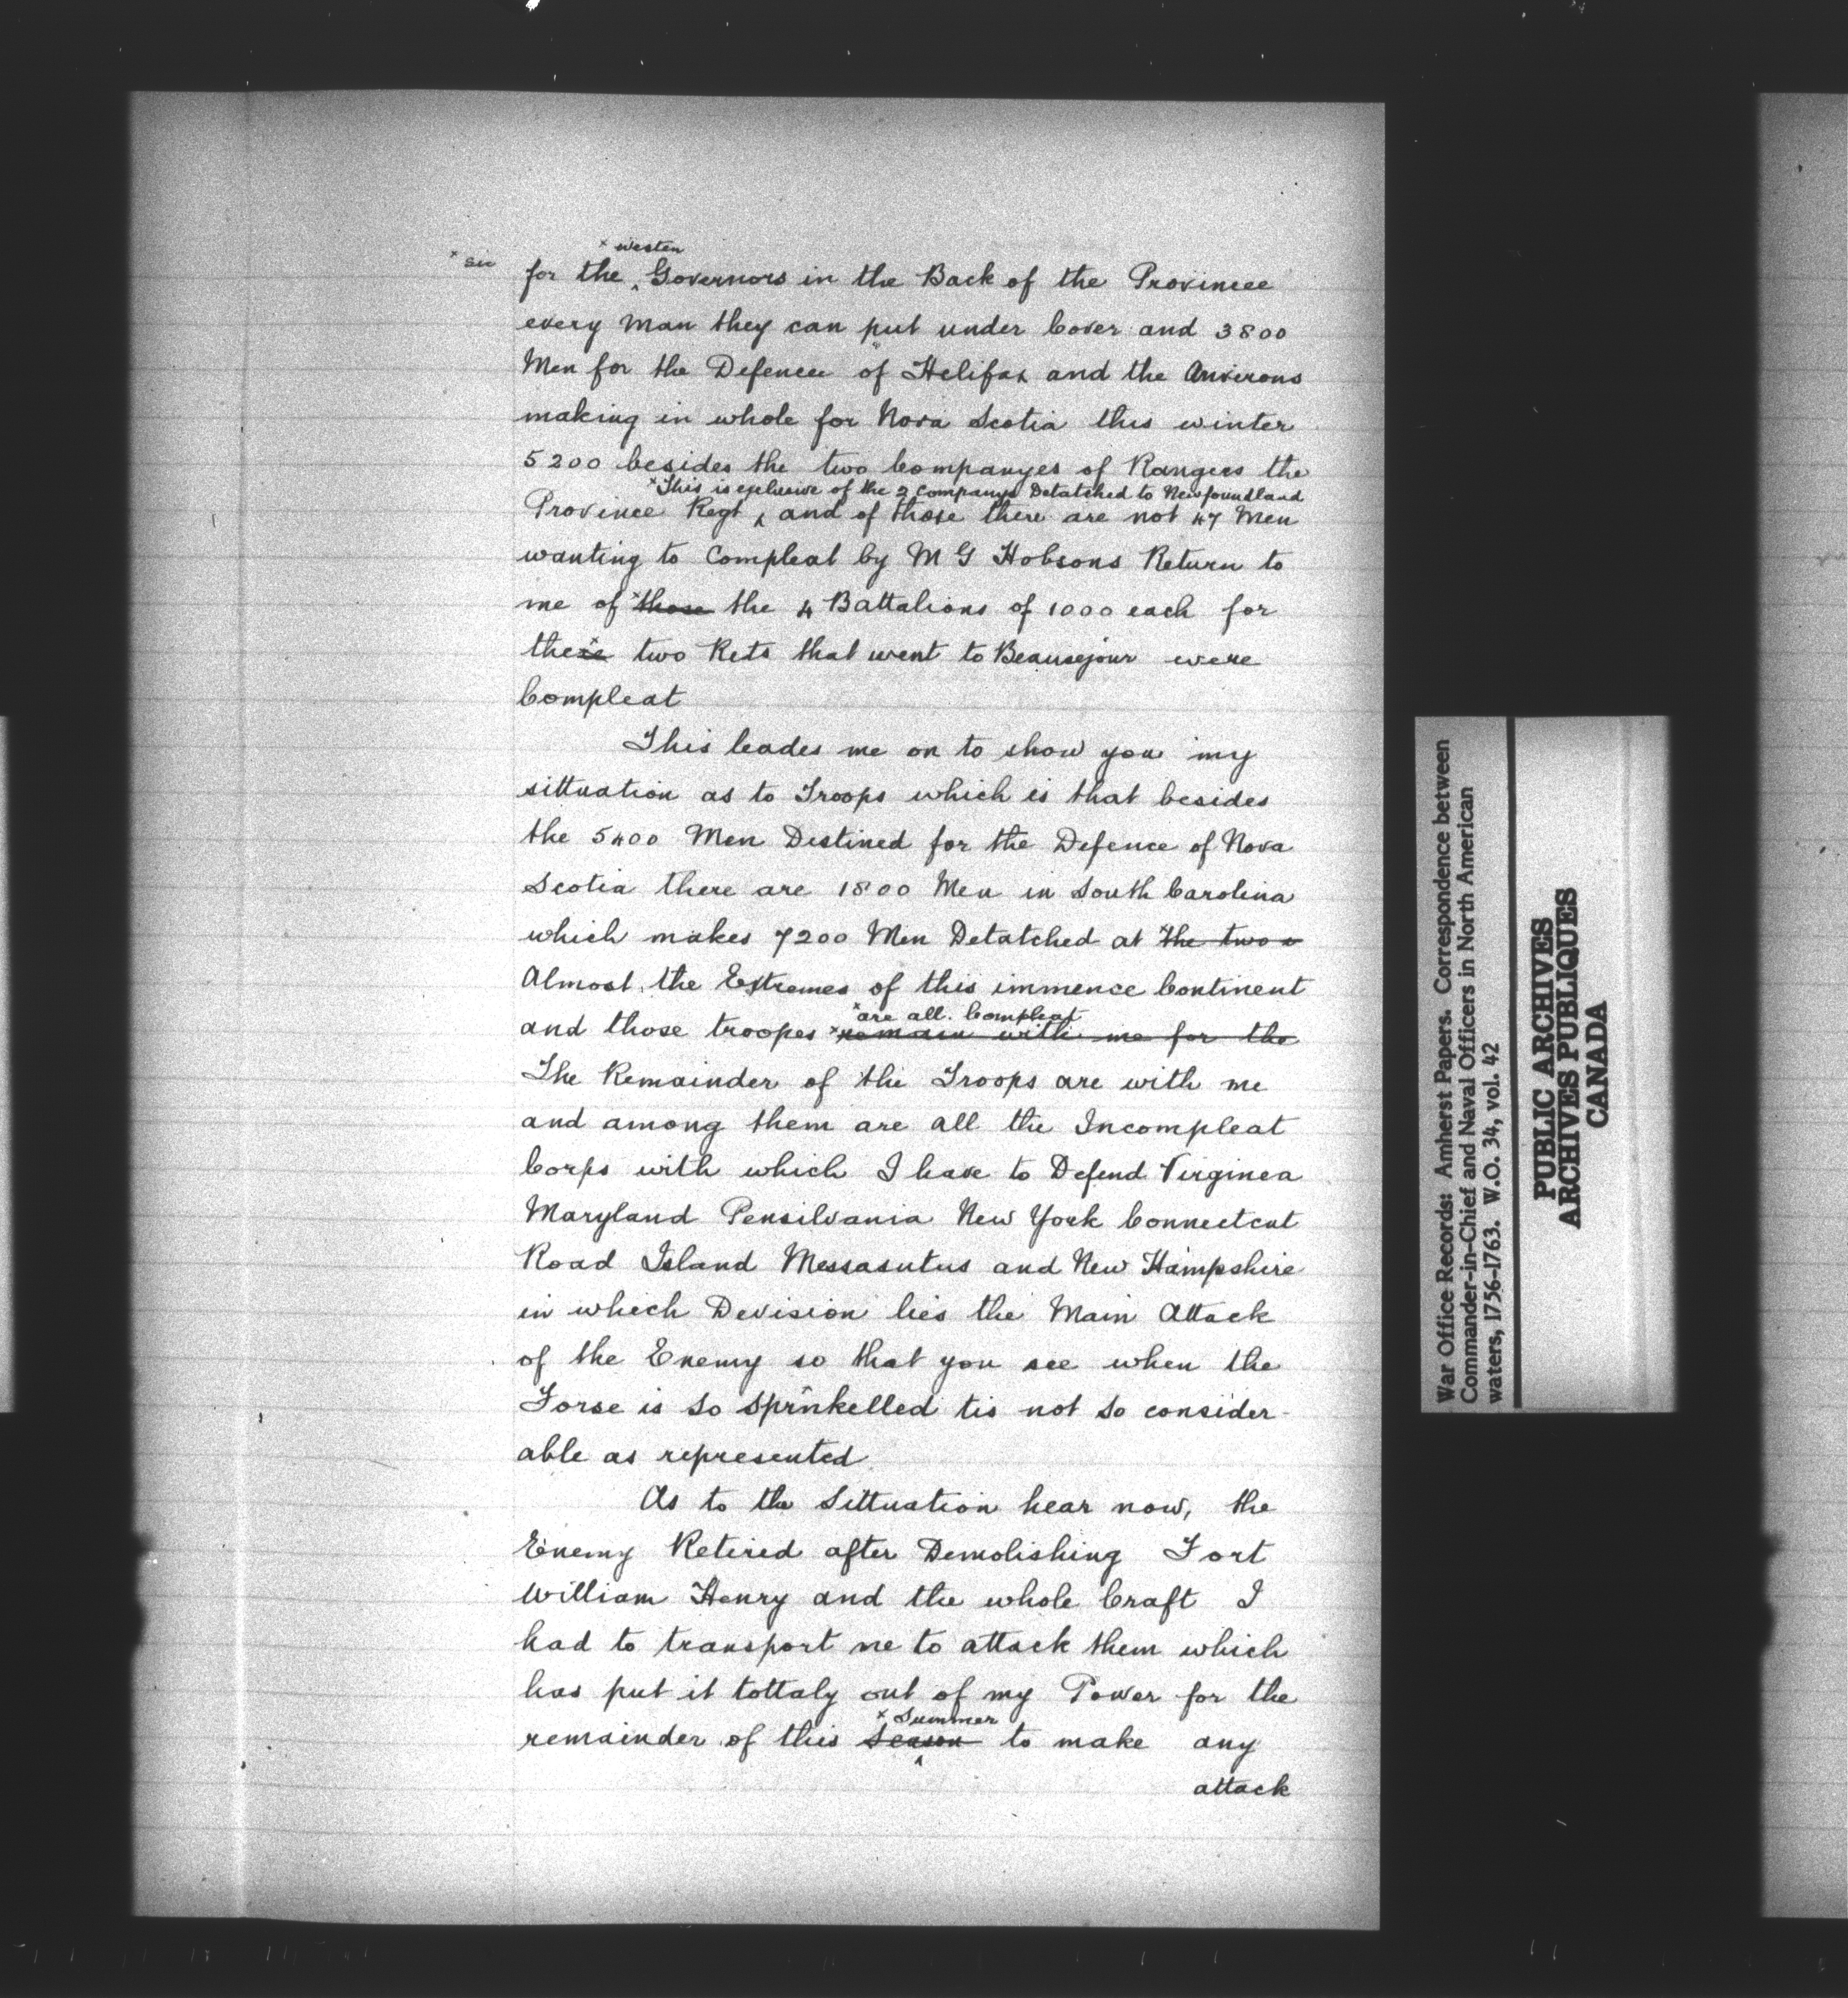 × westen
× sic for the ‸ Governors in the Back of the Provincee
every Man they can put under Cover and 3800
Men for the Defencee of Helifax and the Anverons
making in whole for Nova Scotia this winter
5200 besides the two Companyes of Rangers the
× This is exclusive of the 2 Companys Detatched to Newfoundland
Province Regt ‸ and of those there are not 47 Men
wanting to Compleat by M G Hobsons Return to
me of × those the 4 Battalions of 1000 each for
these two Rets that went to Beausejour were
Compleat
This leades me on to show you my
sittuation as to Troops which is that besides
the 5400 Men Destined for the Defence of Nova
Scotia there are 1800 Men in South Carolina
which makes 7200 Men Detatched at the two
Almost the Extremes of this immence Continent
× are all. Compleat
and those troopes × remain with me for the
The Remainder of the Troops are with me
and among them are all the Incompleat
Corps with which I have to Defend Virginea
Maryland Pensilvania New York Connectcut
Road Island Messasutus and New Hampshire
in which Devision lies the Main Attack
of the Enemy so that you see when the
Forse is so sprinkelled tis not so consider-
able as represented
As to the Sittuation hear now, the
Enemy Retired after Demolishing Fort
William Henry and the whole Craft I
had to transport me to attack them which
has put it tottaly out of my Power for the
× Summer
remainder of this Season ‸ to make any
attack
War Office Records: Amherst Papers. Correspondence between
Commander-in-Chief and Naval Officers in North American
waters, 1756-1763. W.O. 34, vol. 42
PUBLIC ARCHIVES
ARCHIVES PUBLIQUES
CANADA